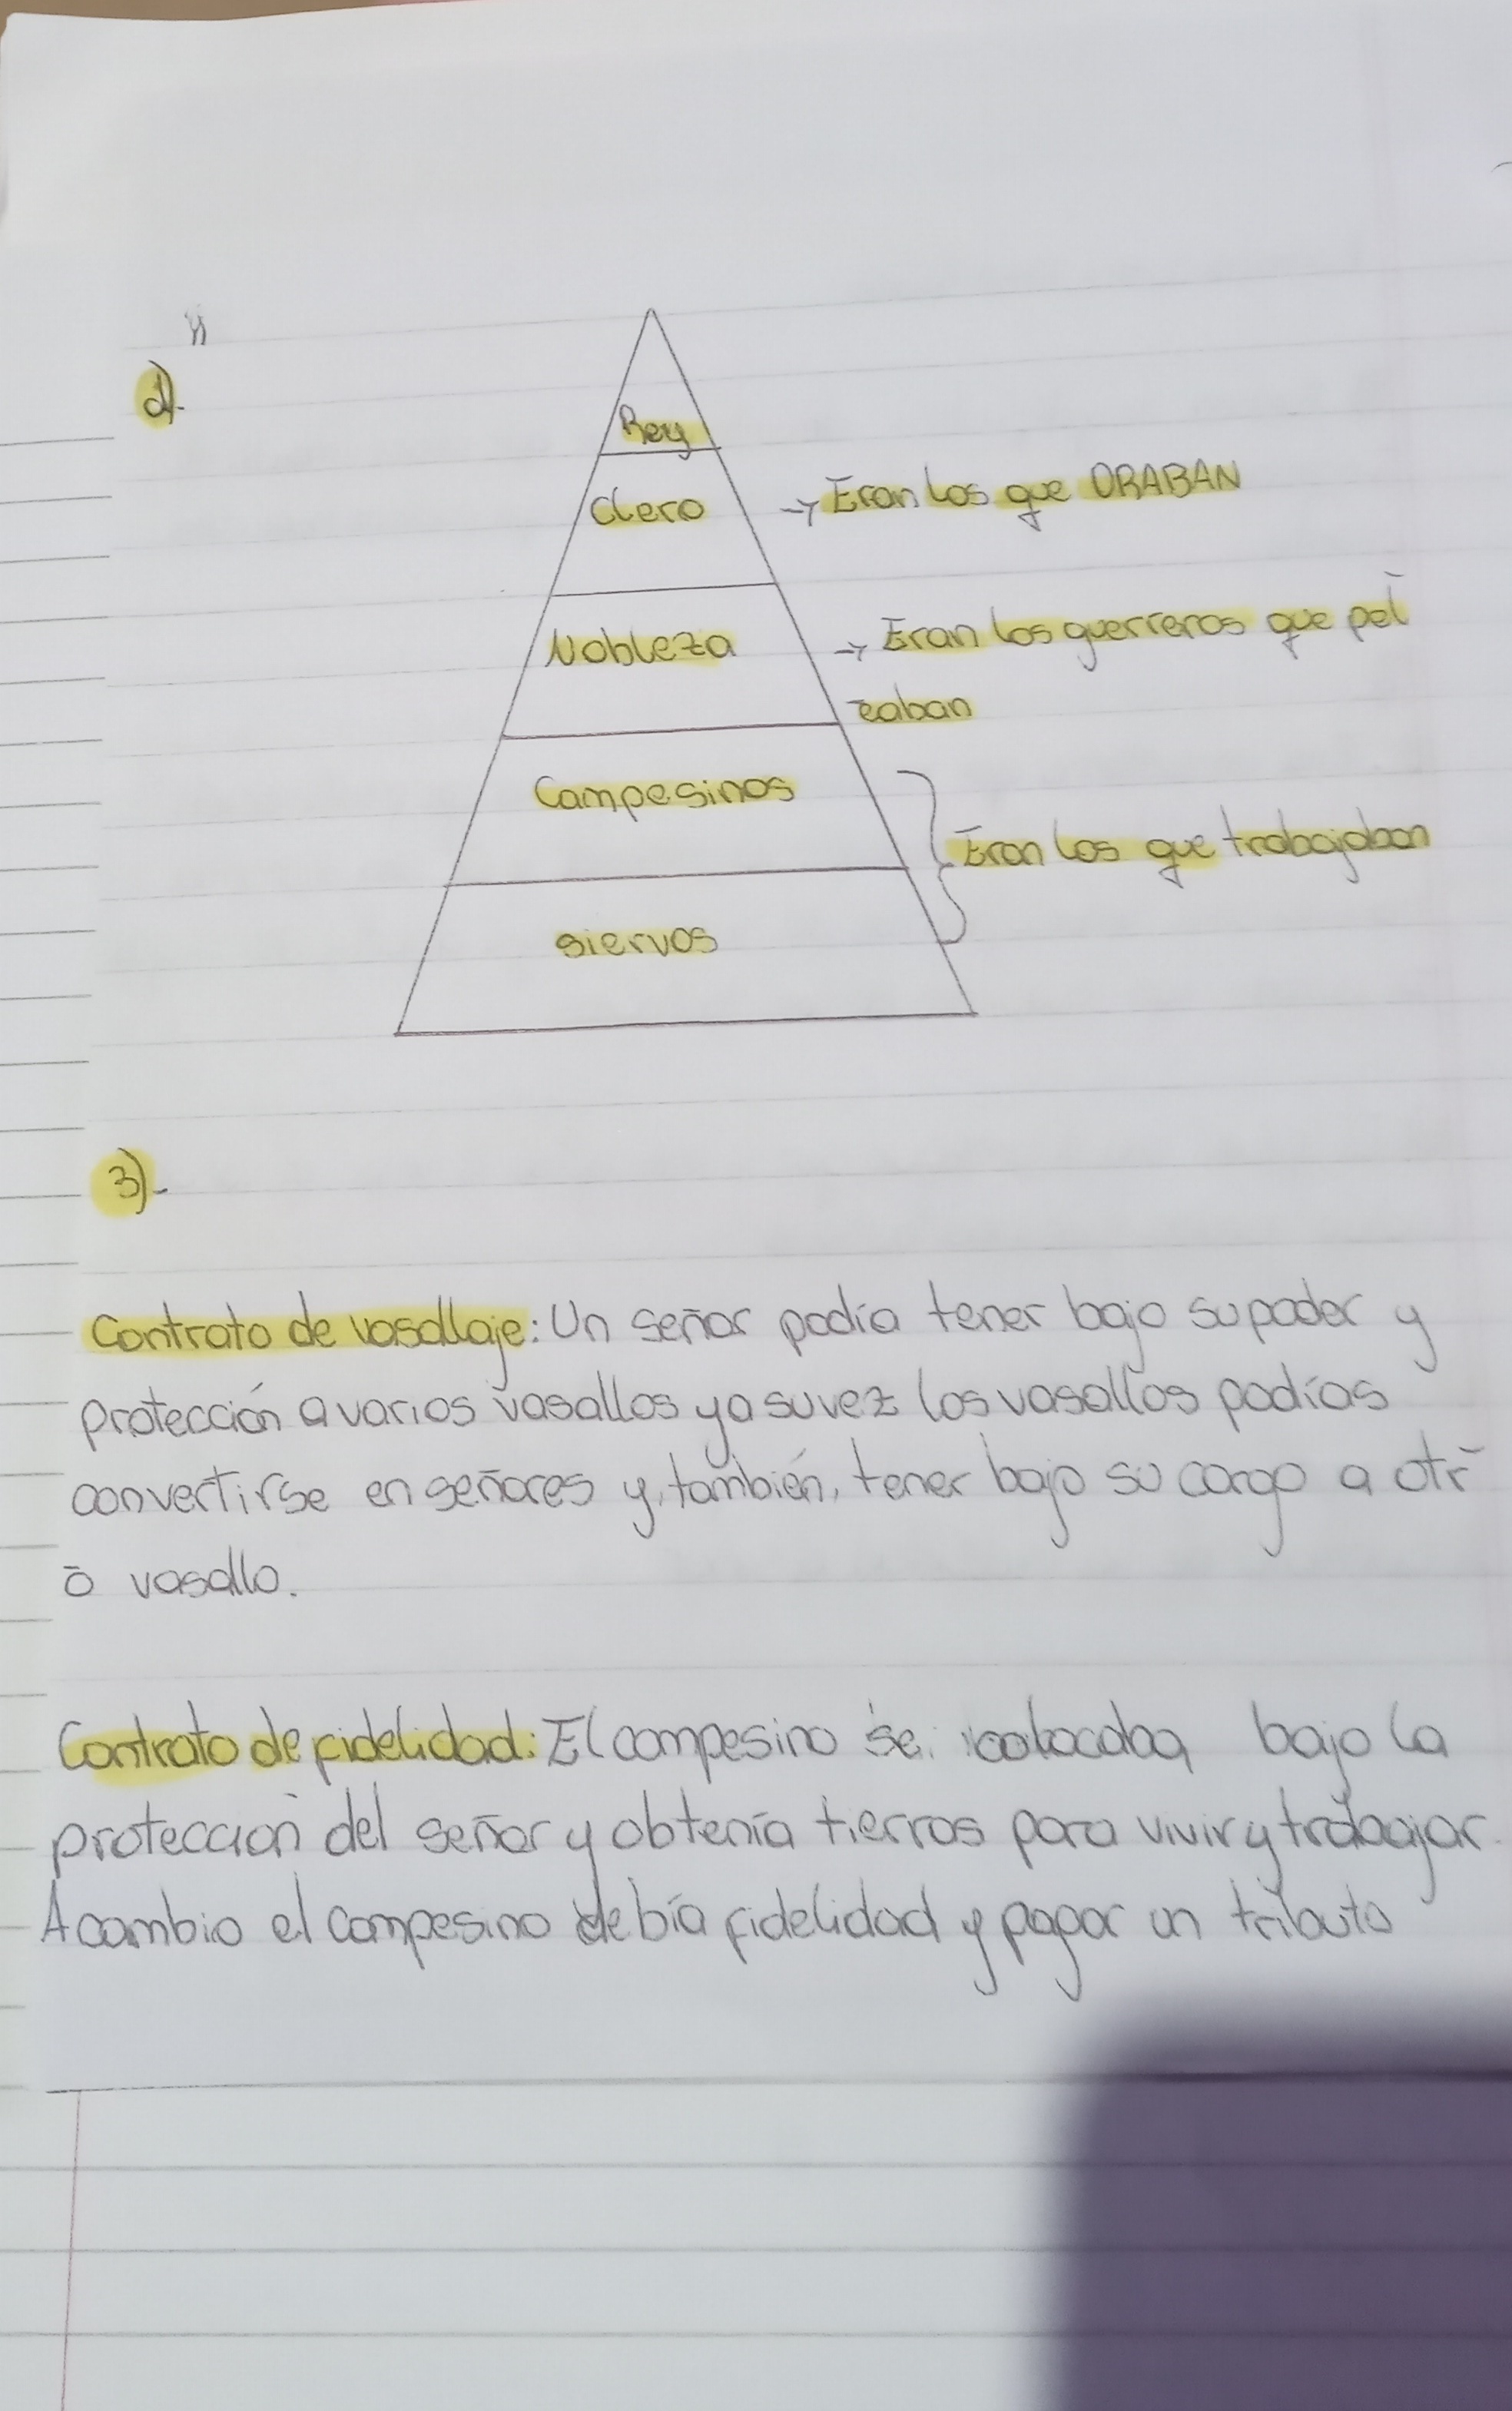 d)-
Rey
Clero → Eran los que ORABAN
Nobleza → Eran los guerreros que pel
eaban
Campesinos
Eran los que trabajaban
siervos
3)-
Contrato de vasallaje: Un señor podía tener bajo su poder y
protección a varios vasallos y a su vez los vasallos podías
convertirse en señores y, también, tener bajo su cargo a otr
o vasallo.
Contrato de fidelidad: El campesino se colocaba bajo la
protección del señor y obtenía tierras para vivir y trabajar.
A cambio el campesino debía fidelidad y pagar un tributo